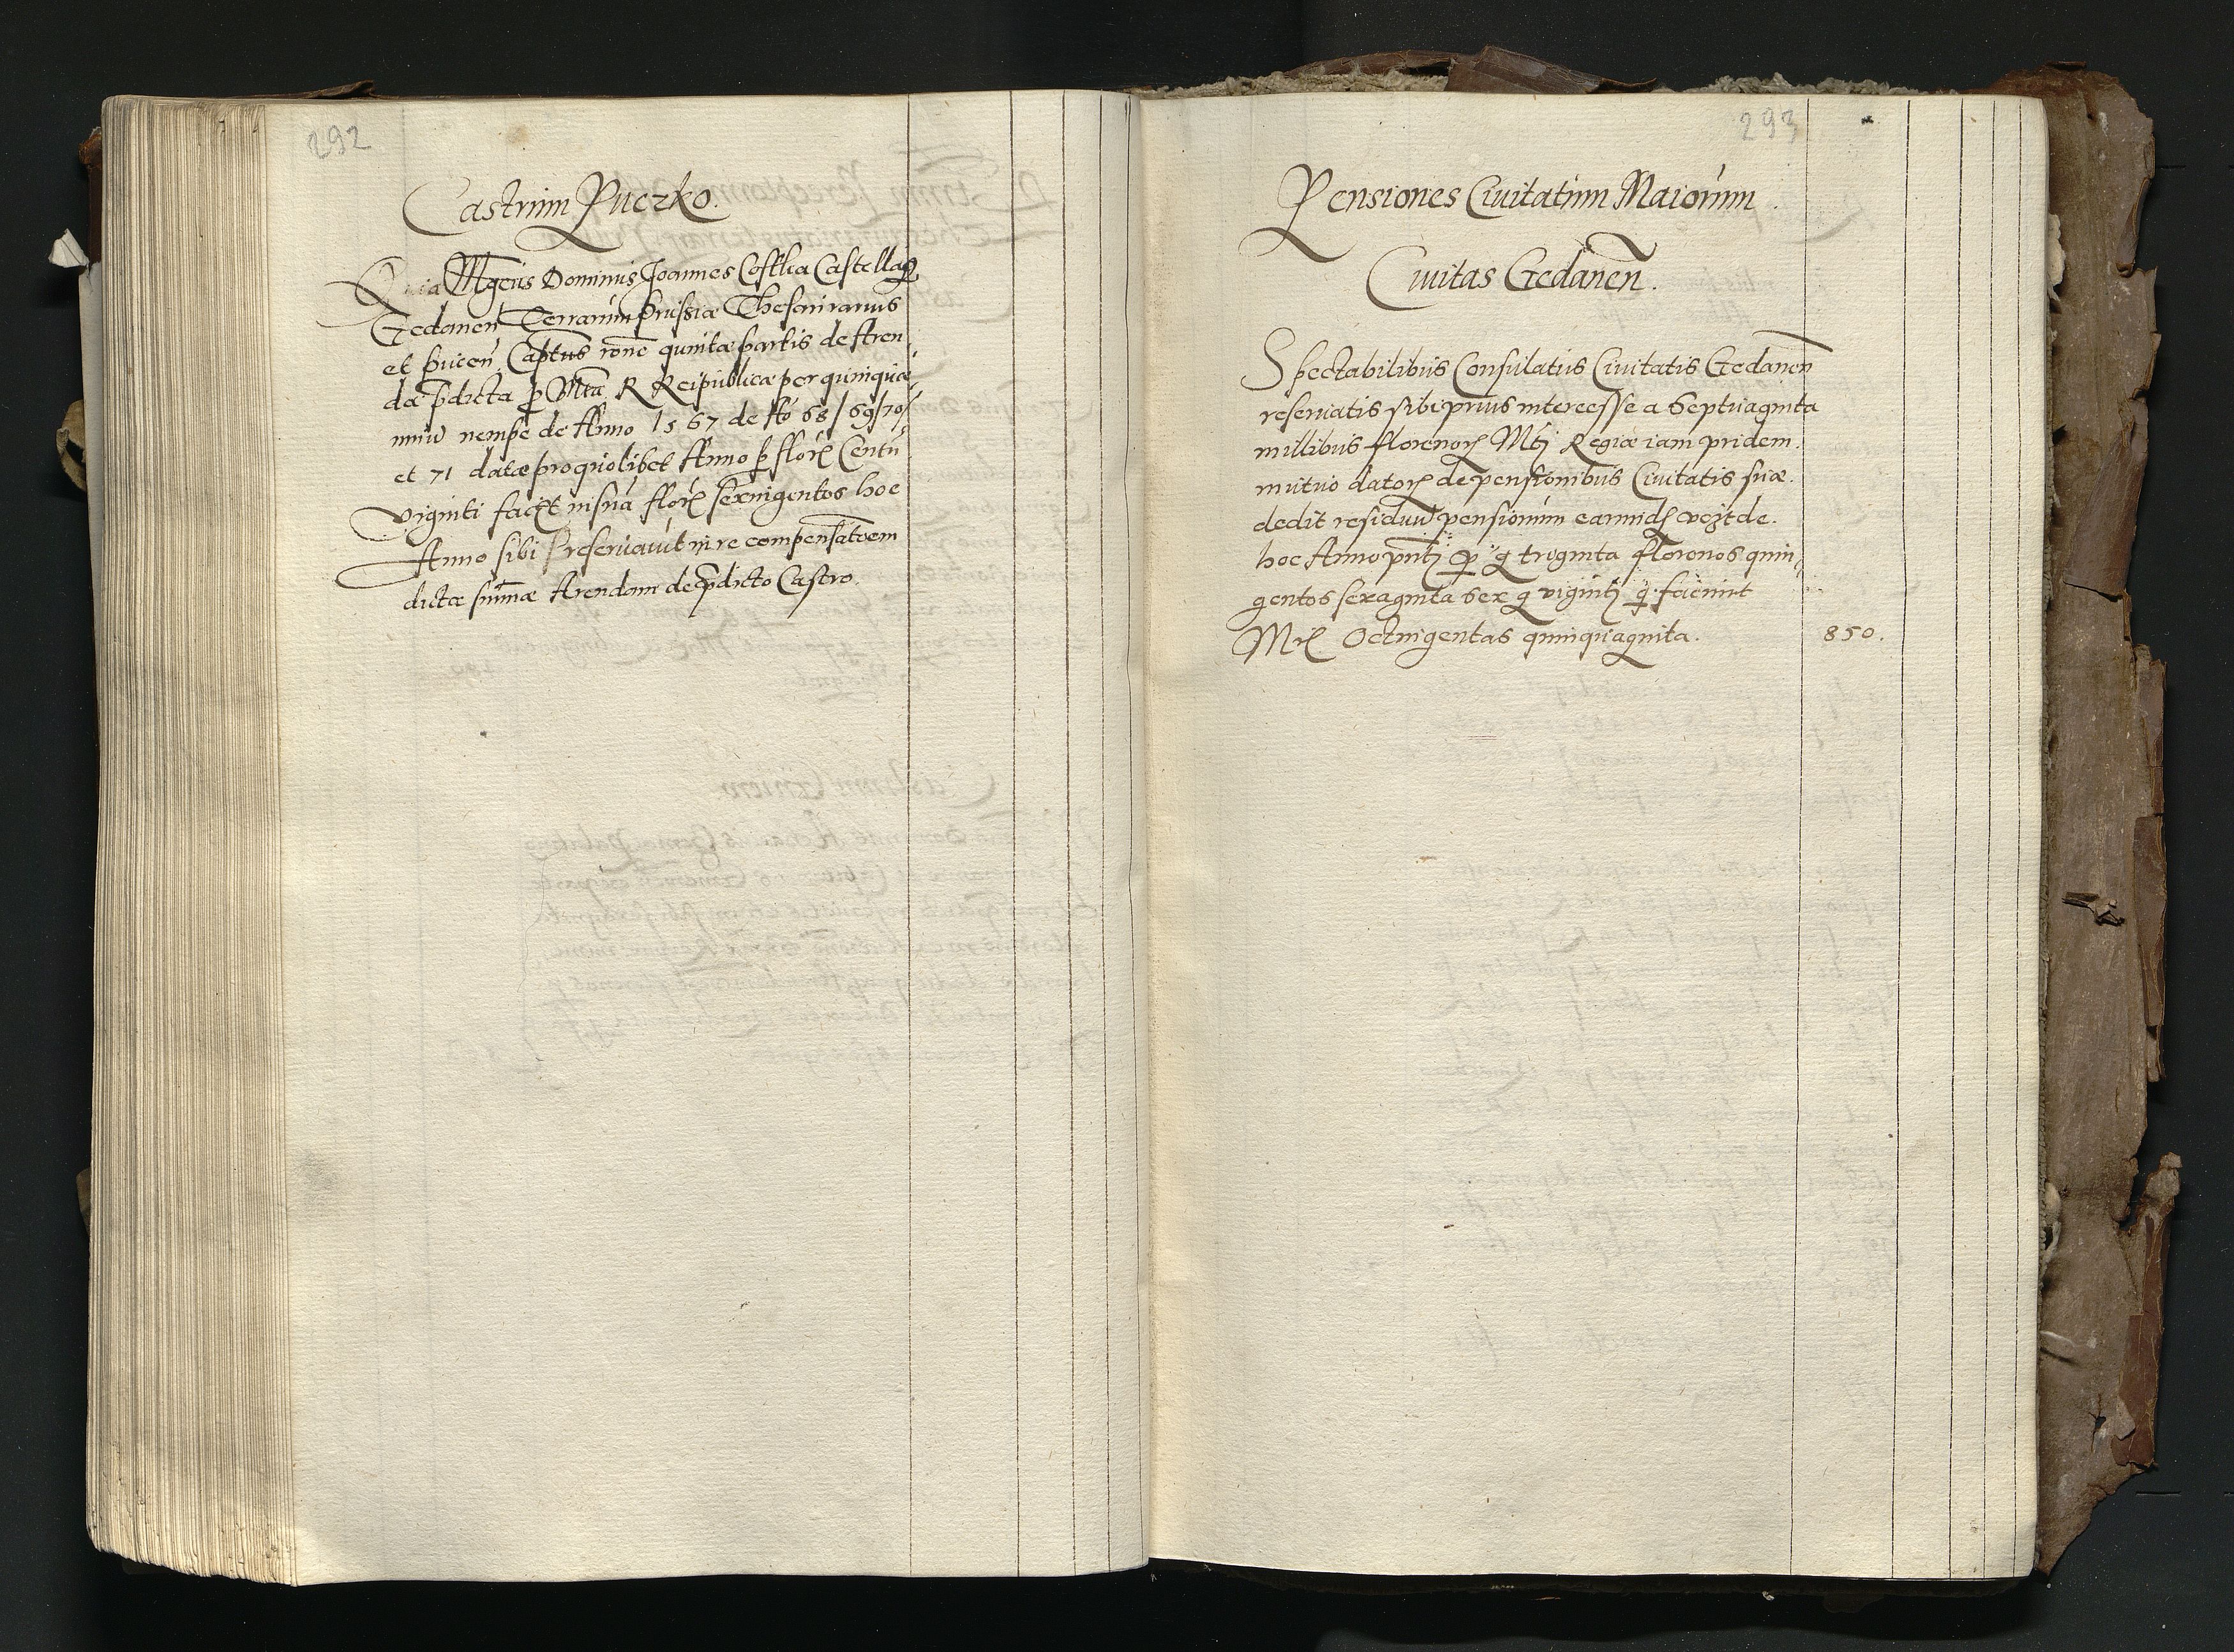 292
Castrum Puczko.
Quia Mgcus Dominus Joannes Costka Castellan9
Gedanen Terrarum Prussiæ Thesaurarius
et Pucen Captus rone quintæ partis de Aren
da pdicta p Mta R Reipublicæ per quinquæ
nniu nempe de Anno 1567 de Ao 68/69/70/
et 71 datæ pro quolibet Anno p flor Centu
viginti facit in sua flor sexingentos hoc
Anno sibi reseruauit in re compensatoem
dictæ sumæ Arendam de pdicto Castro.
293
Pensiones Ciuitatum Maiorum.
Ciuitas Gedanen.
Spectabilibus Consulatus Ciuitatis Gedanen
reseruatis sibi prius interesse a Septuaginta
millibus florenor Mti Regiæ iam pridem.
mutuo dator de pensionibus Ciuitatis suæ.
dedit residuu pensionum earund vezt de.
hoc Anno pnti p g triginta florenos quin
gentos sexaginta sex g viginti q. faciunt
Mr Octingentas quinquaginta. 850.